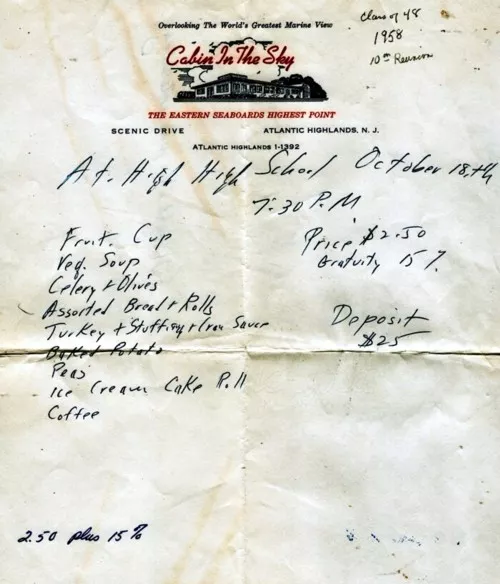 Overlooking The World's Greatest Marine View
Class of 48
1958
10th Reunion
Cabin In The Sky
THE EASTERN SEABOARDS HIGHEST POINT
SCENIC DRIVE ATLANTIC HIGHLANDS, N. J.
ATLANTIC HIGHLANDS 1-1392
At. High High School October 18,th
7:30 P.M
Fruit Cup
Price $2.50
Veg. Soup
Gratuity 15%
Celery + Olives
Assorted Bread + Rolls
Turkey + Stuffing + Cran Sauce
Deposit
$25
Baked Potato
Peas
Ice Cream Cake Roll
Coffee
2.50 plus 15%